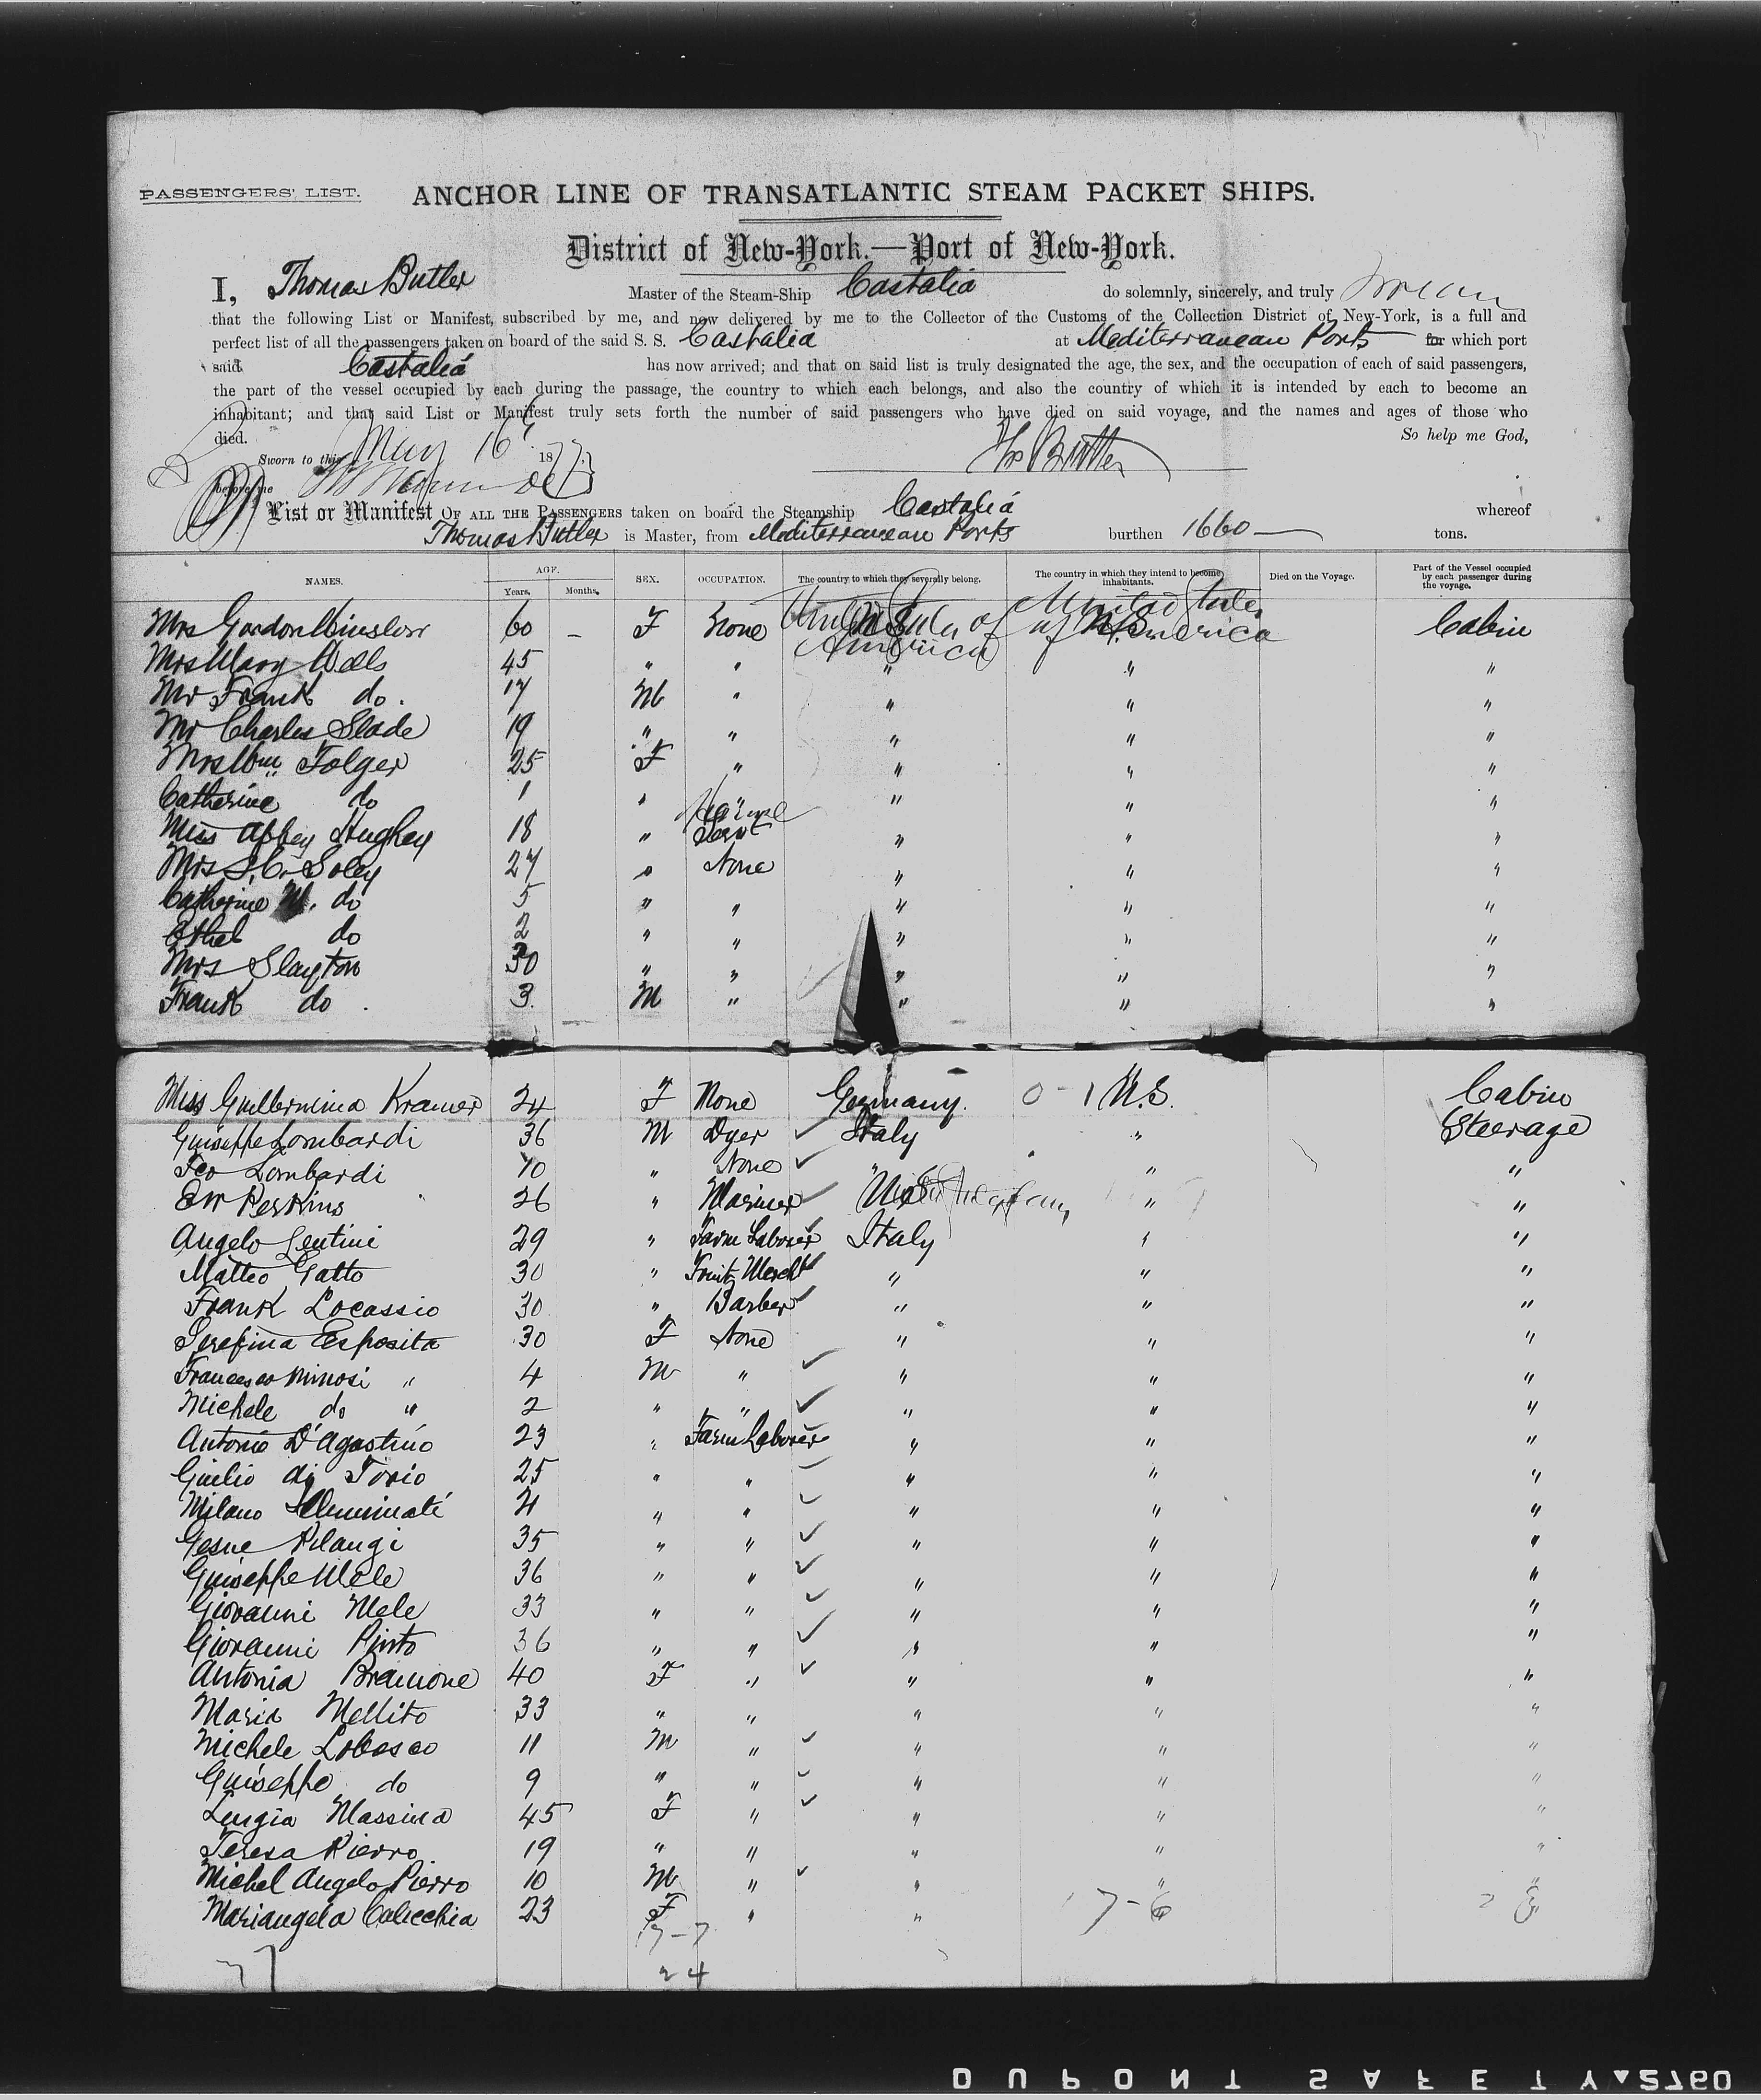 PASSENGERS' LIST.
ANCHOR LINE OF TRANSATLANTIC STEAM PACKET SHIPS.
District of New-York.—Port of New-York.
I, Thomas Butler Master of the Steam-Ship Castalia do solemnly, sincerely, and truly
that the following List or Manifest, subscribed by me, and now delivered by me to the Collector of the Customs of the Collection District of New-York, is a full and
perfect list of all the passengers taken on board of the said S. S. Castalia at Mediterranean Ports for which port
said Castalia has now arrived; and that on said list is truly designated the age, the sex, and the occupation of each of said passengers,
the part of the vessel occupied by each during the passage, the country to which each belongs, and also the country of which it is intended by each to become an
inhabitant; and that said List or Manifest truly sets forth the number of said passengers who have died on said voyage, and the names and ages of those who
died. So help me God,
Sworn to this May 16 187 Tho Butler
before me
List or Manifest OF ALL THE PASSENGERS taken on board the Steamship Castalia whereof
Thomas Butler is Master, from Mediterranean Ports burthen 1660 — tons.
NAMES. AGE. Years. Months. SEX. OCCUPATION. The country to which they severally belong. The country in which they intend to become inhabitants. Died on the Voyage. Part of the Vessel occupied by each passenger during the voyage.
Mrs Gordon Winslow 60 – F None United States of America United States of America Cabin
Mrs Mary Wells 45 " " " " "
Mr Frank do. 17 M " " " "
Mr Charles Slade 19 " " " " "
Mrs Wm Folger 25 F " " " "
Catherine do 1 " " " " "
Miss Abbey Hughey 18 " Servt " " "
Mrs J. C. Soley 27 " None " " "
Catherine M. do 5 " " " " "
Ethel do 2 " " " " "
Mrs Slayton 30 " " " " "
Frank do. 3 M " " " "
Miss Guillermina Kramer 24 F None Germany. 0-1 U.S. Cabin
Guiseppe Lombardi 36 M Dyer Italy " Steerage
Leo Lombardi 10 " None " "
EW Perkins 26 " Mariner " "
Angelo Lentini 29 " Farm Laborer Italy " "
Matteo Gatto 30 " Fruit Mercht " " "
Frank Locassio 30 " Barber " " "
Serefina Esposita 30 F None " " "
Francesco Minosi " 4 M " " " "
Michele do " 2 " " " " "
Antonio D'Agostino 23 " Farm Laborer " " "
Giulio di Torio 25 " " " " "
Milano Illuminate 21 " " " " "
Gesue Pilangi 35 " " " " "
Guiseppe Mele 36 " " " " "
Giovanni Mele 33 " " " " "
Giovanni Pinto 36 " " " " "
Antonia Bramone 40 F " " " "
Maria Mellito 33 " " " " "
Michele Lobosco 11 M " " " "
Guiseppe do 9 " " " " "
Luigia Massina 45 F " " " "
Teresa Pierro 19 " " " " "
Michel Angelo Pierro 10 M " " " "
Mariangela Calicchia 23 F " " 7-6
24
DUPONT SAFETY 2760